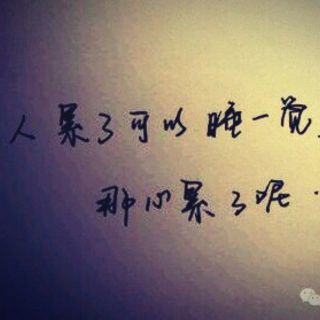 人累了可以睡一觉,
那心累了呢·